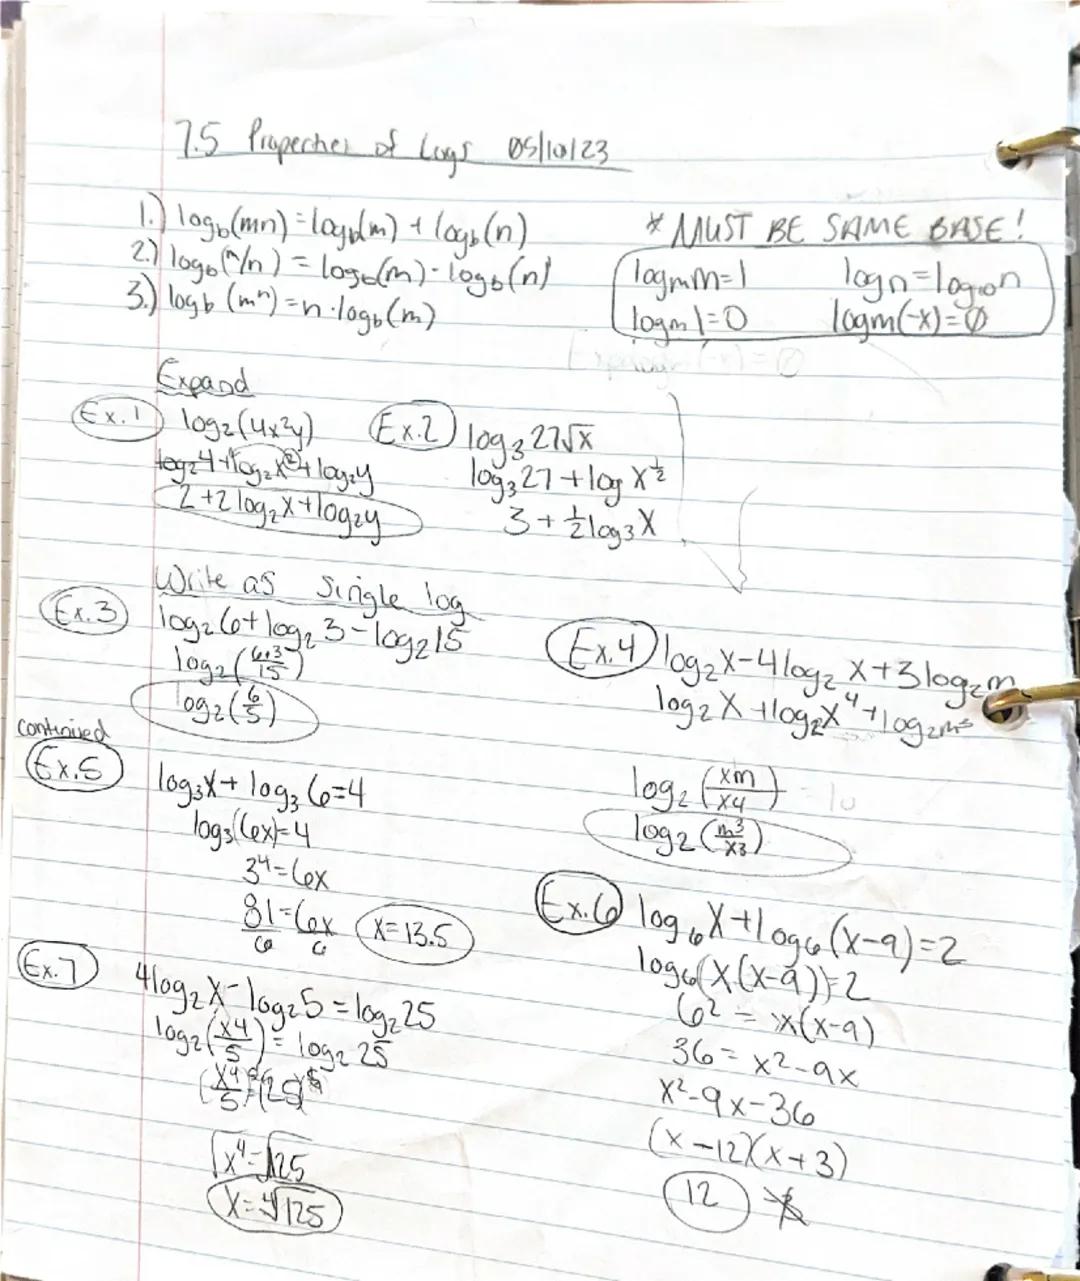 7.5 Properties of Logs 05/10/23
1.) log_b(mn) = log_b(m) + log_b(n)
2.) log_b(m/n) = log_b(m) - log_b(n)
3.) log_b (mⁿ) = n · log_b(m)
* MUST BE SAME BASE!
log_m m = 1 log n = log₁₀ n
log_m 1 = 0 log_m(-x) = Ø
Expand
Ex. 1 log₂(4x²y)
log₂4 + log₂x² + log₂y
2 + 2 log₂x + log₂y
Ex. 2 log₃ 27√x
log₃ 27 + log x^½
3 + ½ log₃ x
Write as single log
Ex. 3 log₂ 6 + log₂ 3 - log₂ 15
log₂ (6·3/15)
log₂ (6/5)
Ex. 4 log₂ x - 4 log₂ x + 3 log₂ m
log₂ x + log₂ x⁴ + log₂ m³
log₂ (xm/x4)
log₂ (m³/x3)
continued
Ex. 5 log₃ x + log₃ 6 = 4
log₃(6x) = 4
3⁴ = 6x
81 = 6x
6 6
x = 13.5
Ex. 6 log₆ x + log₆ (x-9) = 2
log₆(x(x-9)) = 2
6² = x(x-9)
36 = x² - 9x
x² - 9x - 36
(x - 12)(x + 3)
12
Ex. 7 4 log₂ x - log₂ 5 = log₂ 25
log₂ (x4/5) = log₂ 25
√x⁴ = √125
x = ⁴√125